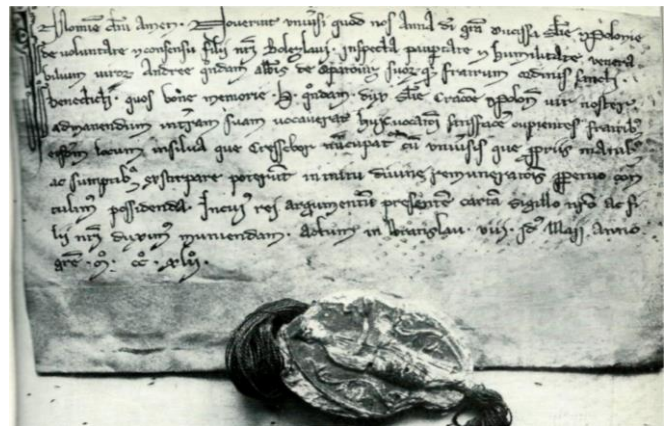 In Nomine dni amen. Noverint univsi quod nos Anna di gra ducissa Slie et Polonie
de voluntate et consensu filii nri Bolezlaui. inspecta pauptate et humilitate venera
bilium viror Andree qndam abbis de Opatowiz suor q fratrum ordinis sancti.
benedicti. quos bone memorie H. qndam dux Slie Cracov et Polon vir noster.
ad manendum in terram suam vocaverat huic vocationi satisfacere cupientes fratrib
eisdem locum in silva que Cressebor nuncupat cu univsis que ppriis manib
ac sumptib exstirpare poterint intuitu divine remuneratois ppetuo con
tulim possidenda. In cui rei argumentu presente cartam sigillo nro ac fi
lii nri duxim muniendam. Actum in Wratislau. viii. id. Maii. Anno
gre. M. CC. XLII.